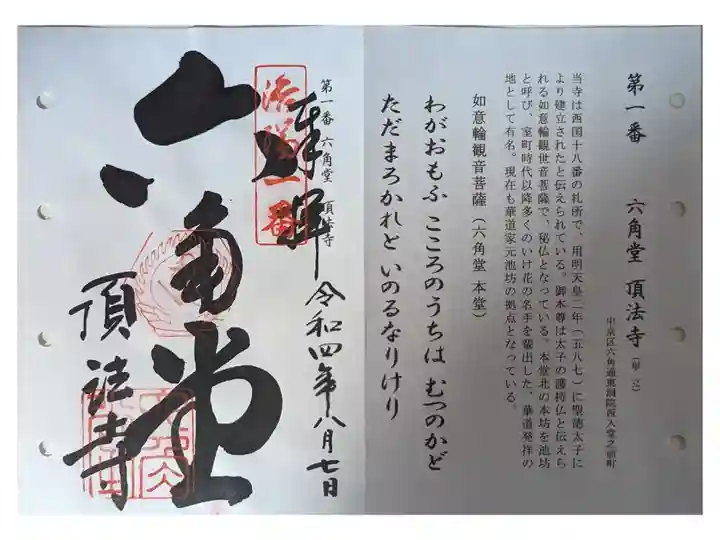 第一番　六角堂 頂法寺（単立）
中京区六角通東洞院西入堂之前町
当寺は西国十八番の札所で、用明天皇二年（五八七）に聖徳太子に
より建立されたと伝えられている。御本尊は太子の護持仏と伝えら
れる如意輪観世音菩薩で、秘仏となっている。本堂北の本坊を池坊
と呼び、室町時代以降多くのいけ花の名手を輩出した、華道発祥の
地として有名。現在も華道家元池坊の拠点となっている。
如意輪観音菩薩（六角堂 本堂）
わがおもふ こころのうちは むつのかど
ただまろかれと いのるなりけり
第一番 六角堂 頂法寺
奉拝
令和四年八月七日
洛陽一番
六角堂
頂法寺